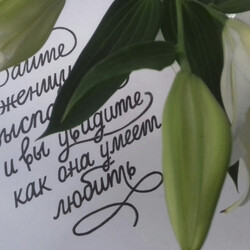 Дайте
женщине
выспаться
и вы увидите,
как она умеет
любить